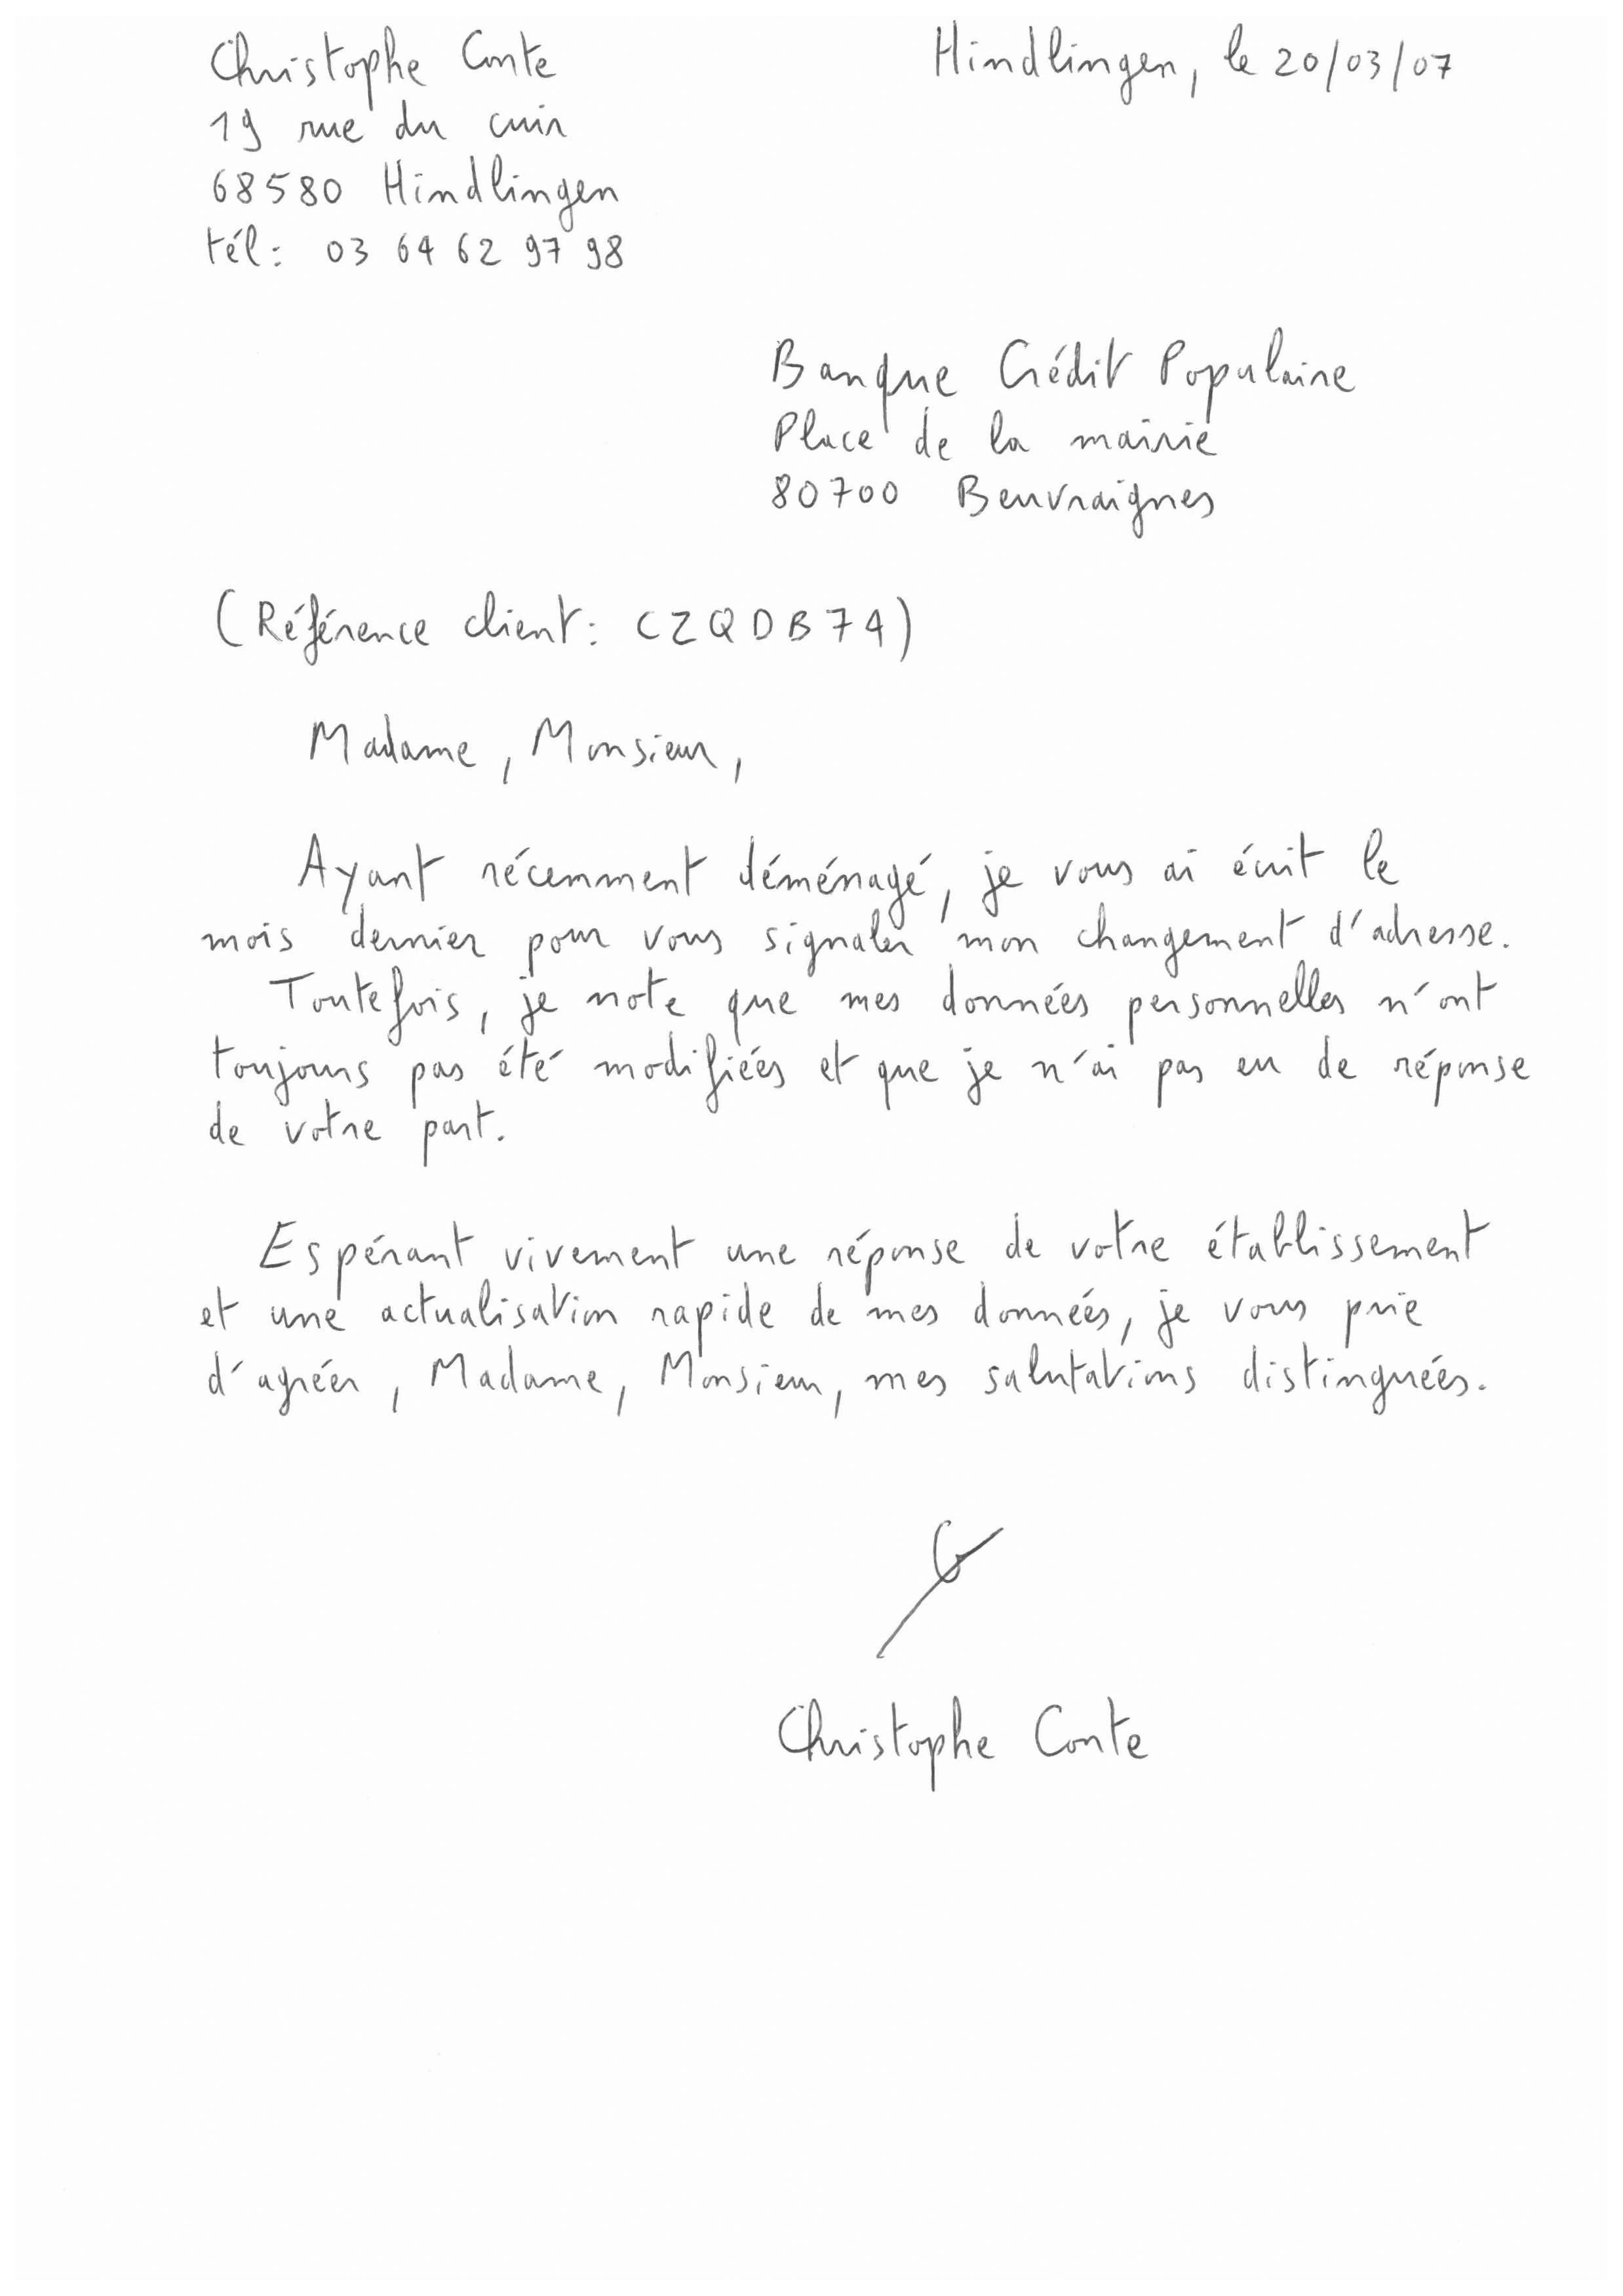 Christophe Conte
Hindlingen, le 20/03/07
19 rue du cuir
68580 Hindlingen
tél: 03 64 62 97 98
Banque Crédit Populaire
Place de la mairie
80700 Beuvraignes
(Référence client: CZQDB74)
Madame, Monsieur,
Ayant récemment déménagé, je vous ai écrit le
mois dernier pour vous signaler mon changement d'adresse.
Toutefois, je note que mes données personnelles n'ont
toujours pas été modifiées et que je n'ai pas eu de réponse
de votre part.
Espérant vivement une réponse de votre établissement
et une actualisation rapide de mes données, je vous prie
d'agréer, Madame, Monsieur, mes salutations distinguées.
Christophe Conte